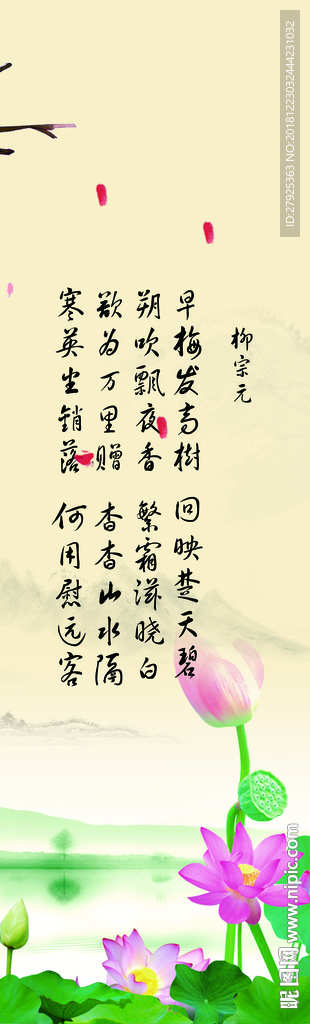 柳宗元
早梅发高樹 回映楚天碧
朔吹飘夜香 繁霜滋晓白
欲为万里赠 杳杳山水隔
寒英坐销落 何用慰远客
ID:27925363 NO:20181223032444231032
昵图网 www.nipic.com